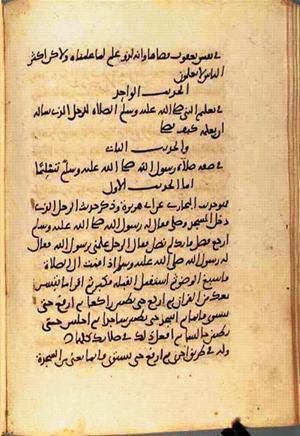 في نفس يعقوب قضاها وانه لذو علم لما علمناه ولاكن اكثر
الناس لا يعلمون
الحديث الواحد
في تعليم النبي صلى الله عليه وسلم الصلاه للرجل الذي ساله
ان يعلمه كيف يصلي
والحديث الثاني
في صفه صلاه رسول الله صلى الله عليه وسلم
اما الحديث الاول
حديث البخاري عن ابي هريرة وذكر حديث الرجل الذي
دخل المسجد وصلى فقال له رسول الله صلى الله عليه وسلم
ارجع فصل فانك لم تصل فقال الرجل علمني يرسول الله فقال
له رسول الله صلى الله عليه وسلم اذا قمت الى الصلاة
فاسبغ الوضو ثم استقبل القبله فكبر ثم اقرا ما تيسر
معك من القران ثم اركع حتى تطمين راكعا ثم ارفع حتى
تستوي قايما ثم اسجد حتى تطمين ساجدا ثم اجلس حتى
تطمين جالسا ثم افعل ذلك في صلاتك كلها
وله في طريق اخرى ثم ارفع حتى تستوي قايما يعني من السجدة